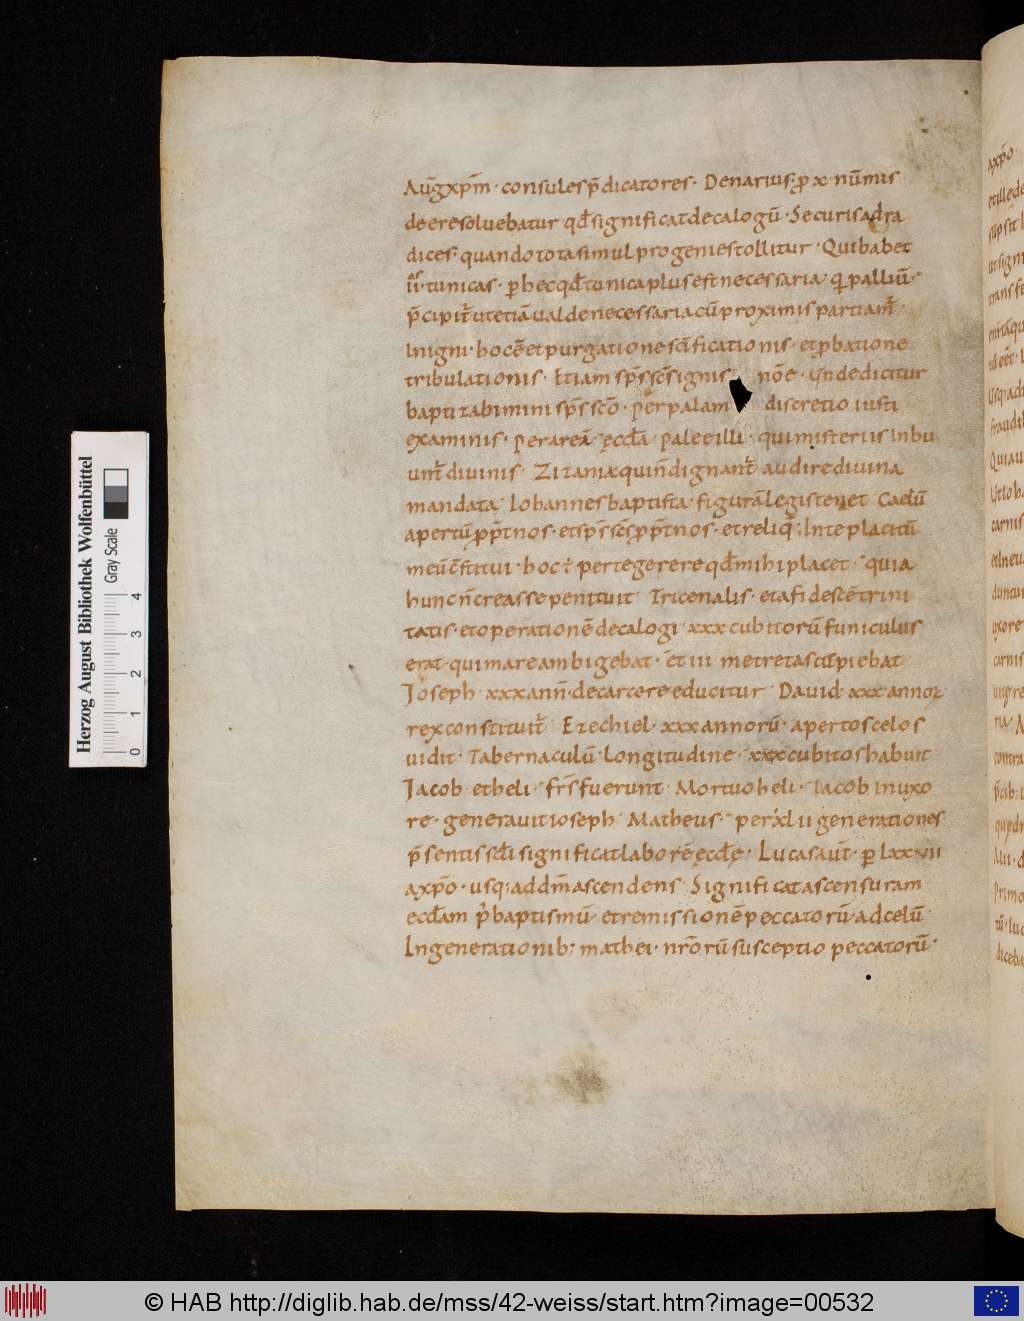 Auḡ xpm̄· consules p̄dicatores· Denarius· ꝓ x· nūmis
de ere soluebatur· qđ significat decalogū· Securis ad ra
dices· quando tota simul progenies tollitur· Qui habet
ii· tunicas· ꝑ hec qđ tunica plus est necessaria· quā palliū·
p̄cipit ut etiā ualde necessaria cū proximis partiamͬ·
In igni· hoc ē et purgatione scīficationis· et ꝓbatione
tribulationis· Etiam sp̄s sc̄s ignis nōe· Unde dicitur
baptizabimini sp̄s sc̄o· per palam discretio iusti
examinis· per areā· ęccła· palee illi· qui misteriis Inbu
unt̄ divinis· Zizania qui n̄ dignant̄· audire divina
mandata· Iohannes baptista· figurā legis tenet· Caelū
apertū ꝓpt̄ nos· et sp̄s sc̄s ꝓpt̄ nos· et reliq· In te placitū
meū cōstitui· hoc ÷ per te gerere qđ mihi placet· quia
hunc n̄ creasse penituit· Tricenalis· etas fidē scē trini
tatis· et operationē decalogi· xxx cubitorū funiculus
erat· qui mare ambigebat· et iii· metretas capiebat
Ioseph· xxx ann̄· de carcere educitur· David· xxx annoꝝ
rex constituit̄· Ezechiel· xxx annorū· apertos celos
uidit· Tabernaculū· Longitudine· xxx cubitos habuit·
Iacob· et heli· frs̄ fuerunt· Mortuo heli· Iacob in uxo
re· generauit ioseph· Matheus· per xl ii generationes
p̄sentis scłi significat laborē ęccłę· Lucas aut̄· ꝑ lxx vii
a xp̄o· usq; ad dm̄ ascendens· Significat ascensuram
eccłam p̄ baptismū· et remissionē peccatorū· ad celū·
In generationib; mathei· nr̄orū susceptio peccatorū·
Herzog August Bibliothek Wolfenbüttel
Gray Scale
0 1 2 3 4
© HAB http://diglib.hab.de/mss/42-weiss/start.htm?image=00532